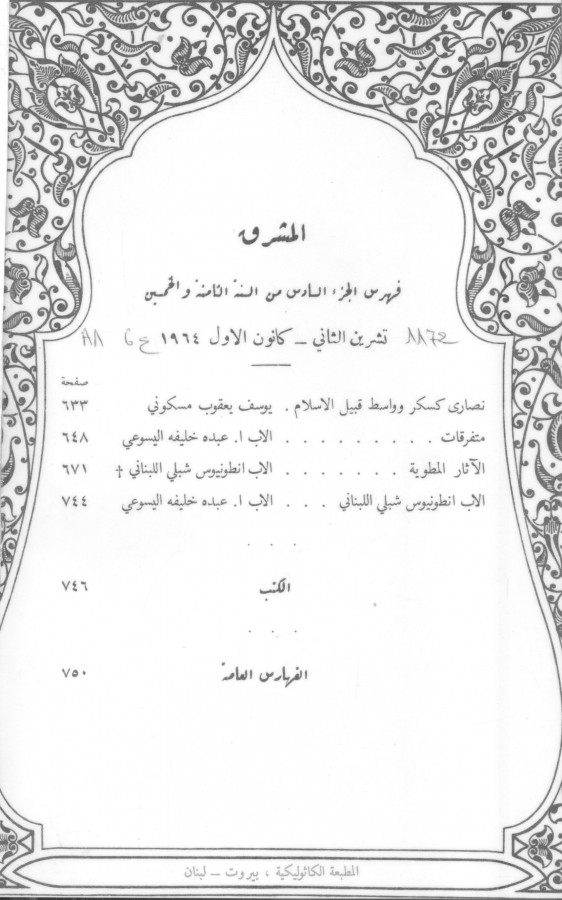 المشرق
فهرس الجزء السادس من السنة الثامنة والخمسين
تشرين الثاني – كانون الاول ١٩٦٤
صفحة
نصارى كسكر وواسط قبيل الاسلام . يوسف يعقوب مسكوني ٦٣٣
متفرقات . . . . . . . . . الاب ا. عبده خليفه اليسوعي ٦٤٨
الآثار المطوية . . . . . . . الاب انطونيوس شبلي اللبناني † ٦٧١
الاب انطونيوس شبلي اللبناني . . . الاب ا. عبده خليفه اليسوعي ٧٤٤
. . .
الكتب ٧٤٦
. . .
الفهارس العامة ٧٥٠
المطبعة الكاثوليكية ، بيروت – لبنان